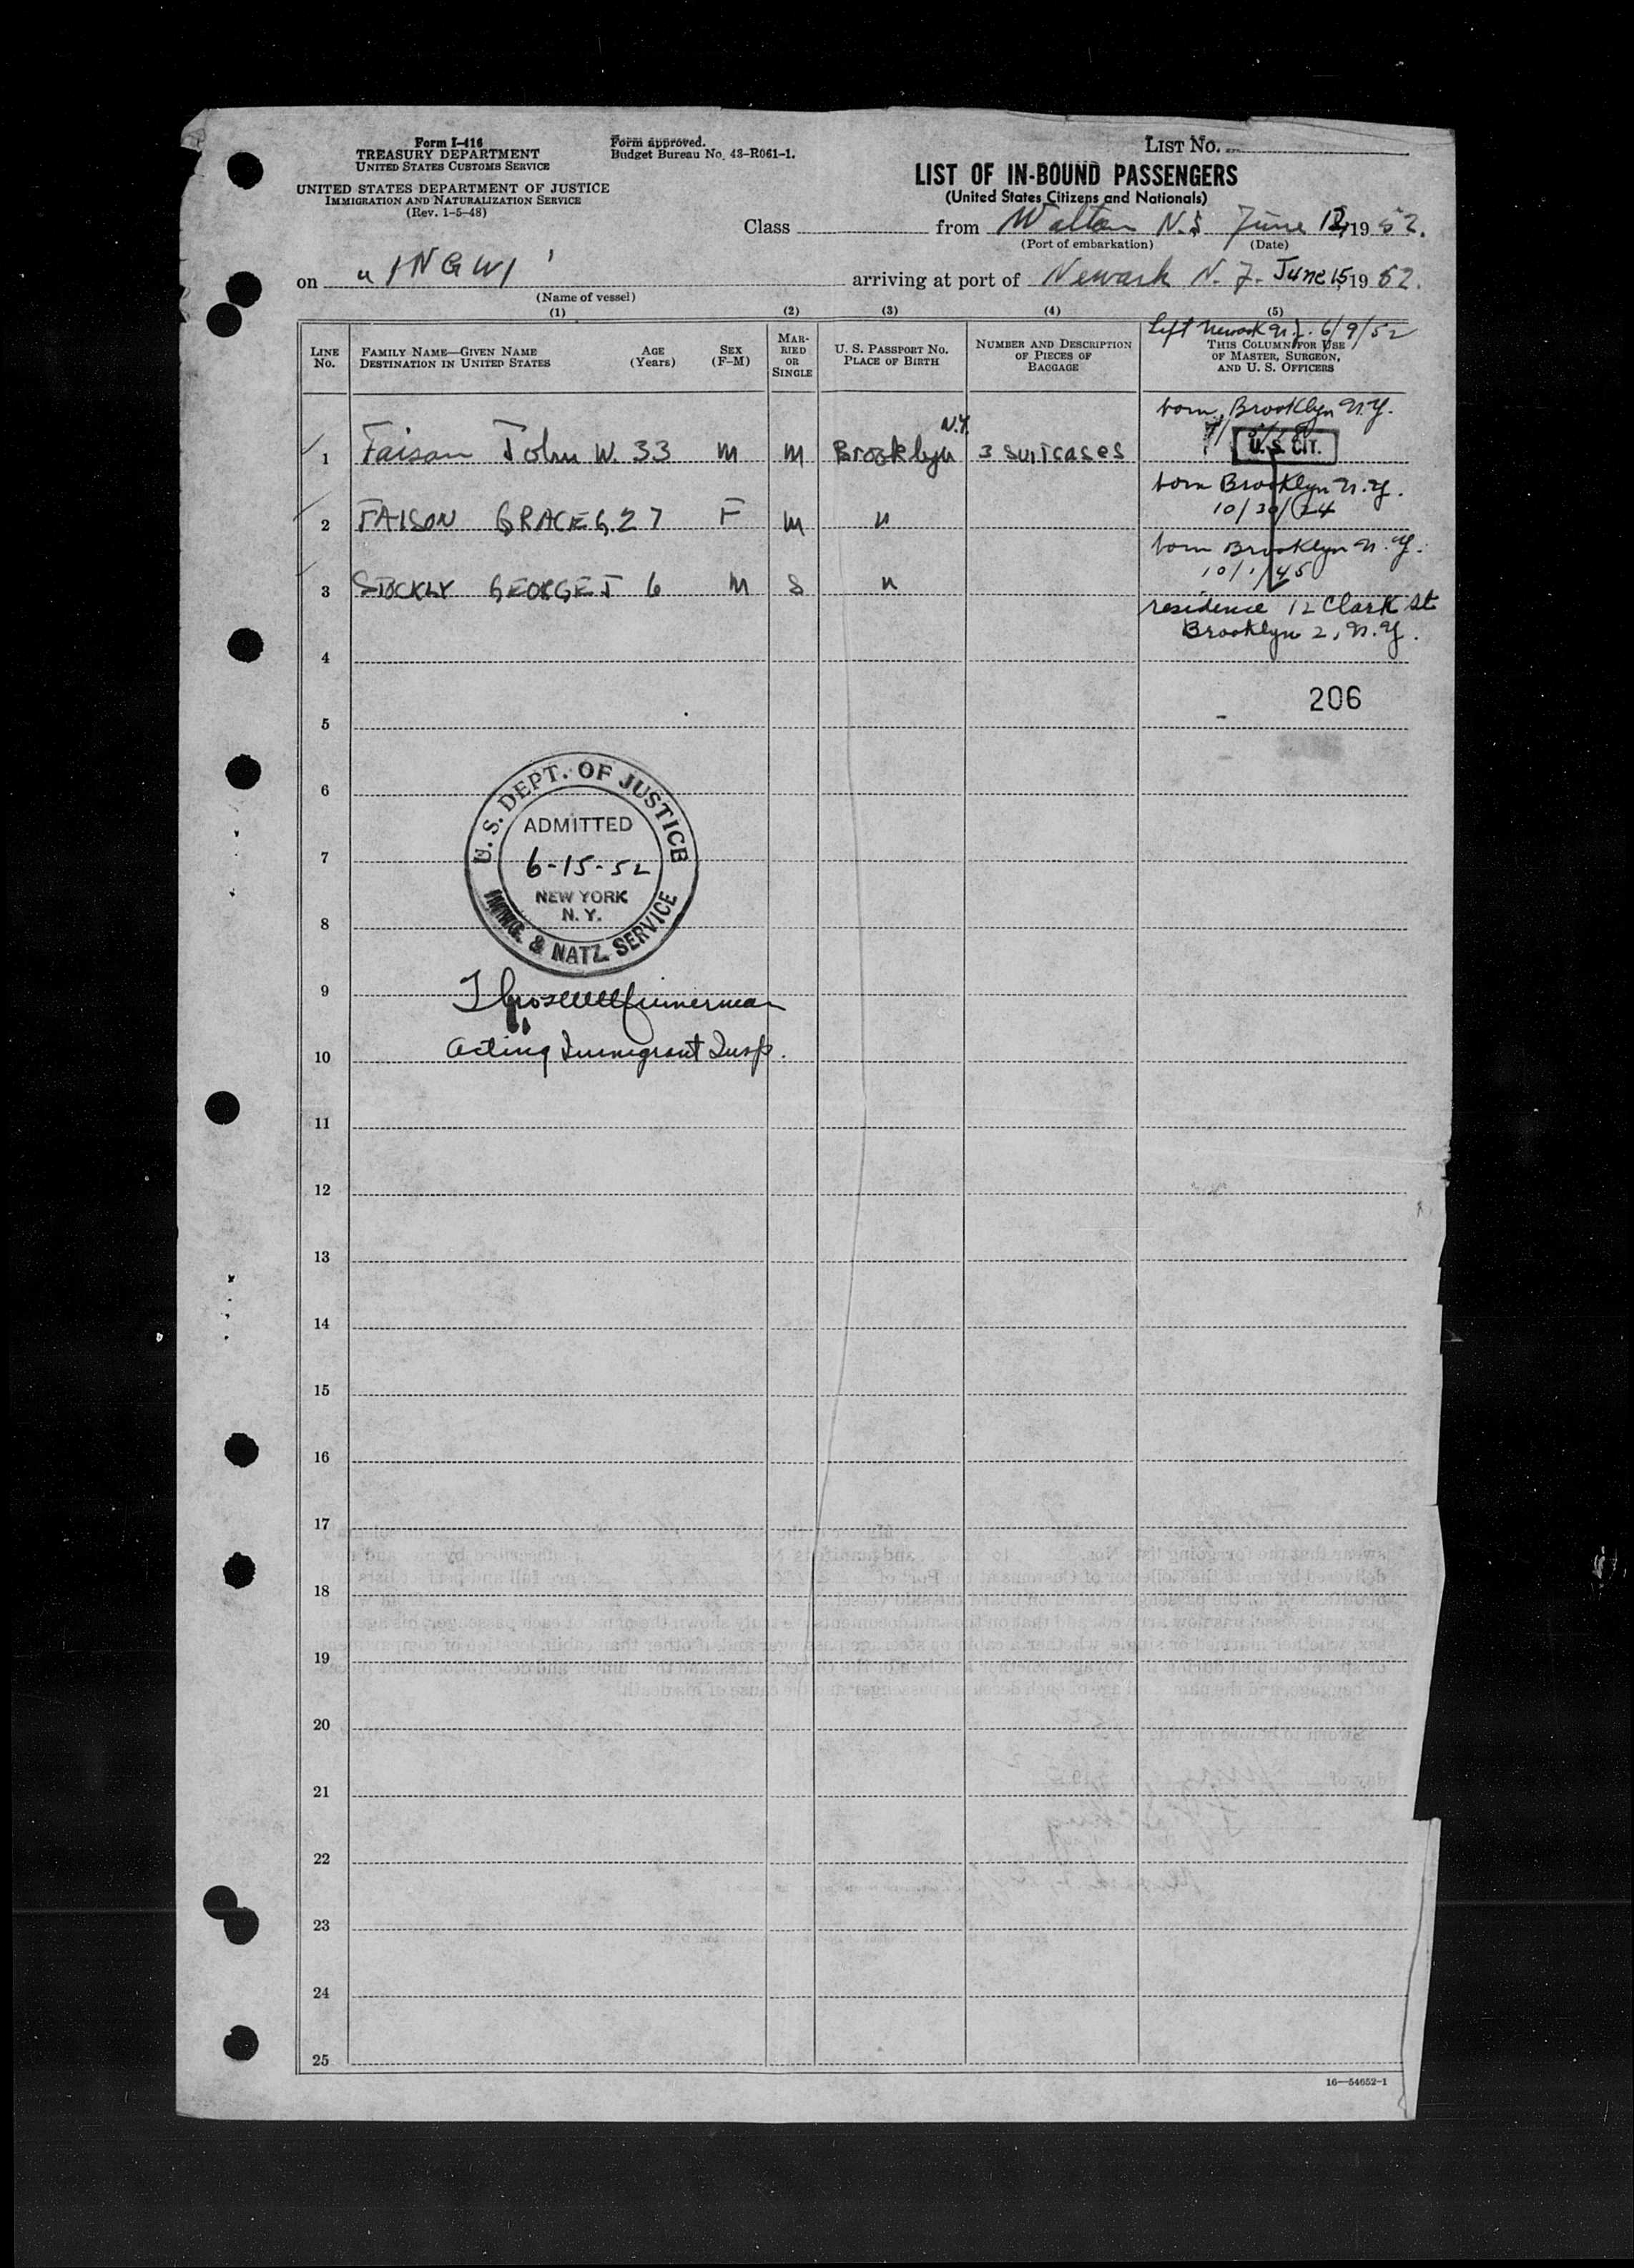 Form I-416
TREASURY DEPARTMENT
UNITED STATES CUSTOMS SERVICE
UNITED STATES DEPARTMENT OF JUSTICE
IMMIGRATION AND NATURALIZATION SERVICE
(Rev. 1-5-48)
Form approved.
Budget Bureau No. 43-R061-1.
LIST NO.
LIST OF IN-BOUND PASSENGERS
(United States Citizens and Nationals)
Class from Walton N.S. June 12, 1952.
(Port of embarkation) (Date)
on "INGWI" arriving at port of Newark N.J. June 15, 1952.
(Name of vessel)
(1) (2) (3) (4) (5)
left Newark N.J. 6/9/52
LINE NO. FAMILY NAME—GIVEN NAME DESTINATION IN UNITED STATES AGE (Years) SEX (F-M) MARRIED OR SINGLE U. S. PASSPORT NO. PLACE OF BIRTH NUMBER AND DESCRIPTION OF PIECES OF BAGGAGE THIS COLUMN FOR USE OF MASTER, SURGEON, AND U. S. OFFICERS
born, Brooklyn N.Y.
1 Faison John W. 33 M M Brooklyn N.Y. 3 suitcases U.S. CIT.
born Brooklyn N.Y.
2 FAISON GRACE G. 27 F M " 10/30/24
born Brooklyn N.Y.
3 STOCKLY GEORGE J 6 M S " 10/1/45
residence 12 Clark St
Brooklyn 2, N.Y.
4
206
5
6
U. S. DEPT. OF JUSTICE
ADMITTED
7
6-15-52
NEW YORK
N. Y.
8
IMMIG. & NATZ. SERVICE
9
10 Acting Immigrant Insp.
11
12
13
14
15
16
17
18
19
20
21
22
23
24
25
16—54652-1